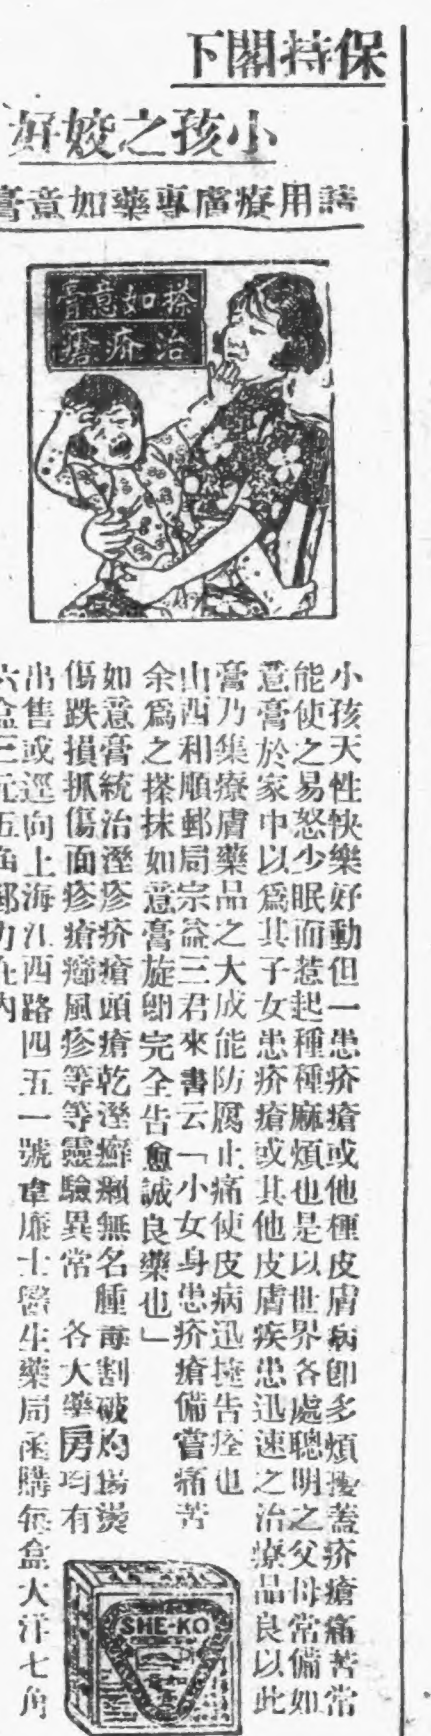 保持閣下
小孩之姣好
請用療膚專藥如意膏
搽如意膏
治疥瘡
小孩天性快樂好動但一患疥瘡或他種皮膚病卽多煩擾蓋疥瘡痛苦常
能使之易怒少眠而惹起種種麻煩也是以世界各處聰明之父母常備如
意膏於家中以爲其子女患疥瘡或其他皮膚疾患迅速之治療品良以此
膏乃集療膚藥品之大成能防腐止痛使皮病迅捷告痊也
山西和順郵局宗益三君來書云「小女身患疥瘡備嘗痛苦
余爲之搽抹如意膏旋卽完全告愈誠良藥也」
如意膏統治溼疹疥瘡頭瘡乾溼癬癩無名腫毒割破灼傷燙
傷跌損抓傷面疹瘡癤風疹等等靈驗異常 各大藥房均有
出售或逕向上海江西路四五一號韋廉士醫生藥局函購每盒大洋七角
六盒三元五角郵力在內
SHE-KO